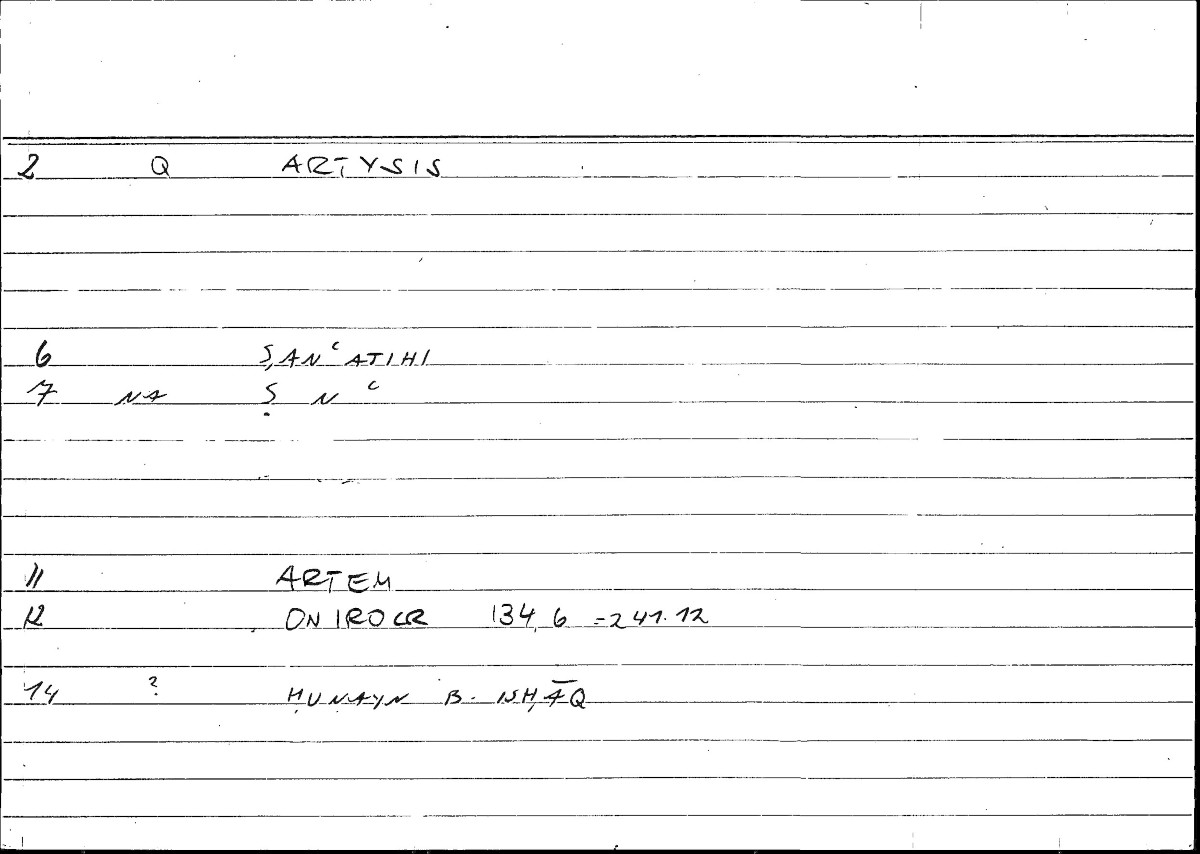 2 Q ARTYSIS
6 ṢANʿATIHI
7 NA Ṣ N ʿ
11 ARTEM
12 ONIROCR 134,6 =241.12
14 ? ḤUNAYN B. ISḤĀQ